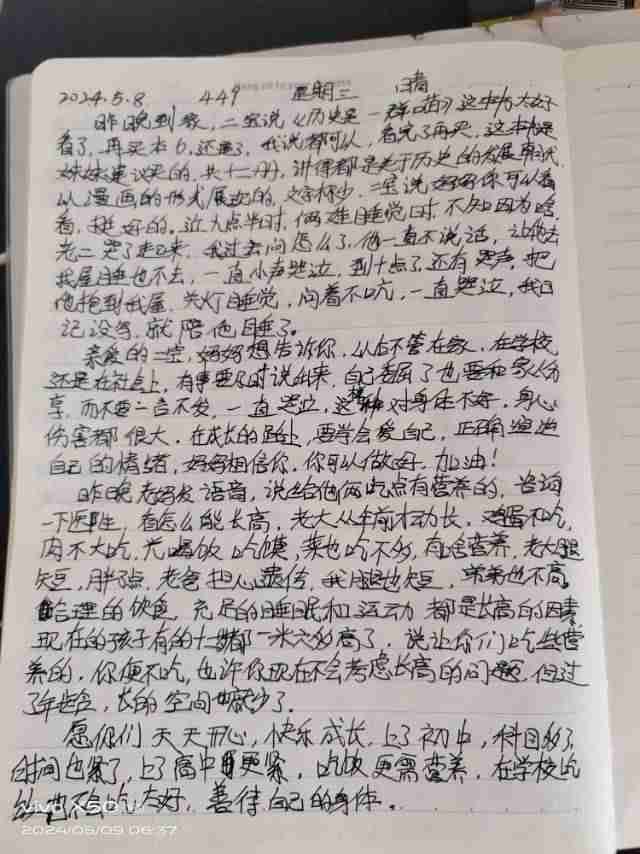 2024.5.8 449 星期三 晴
昨晚到家,二宝说《历史是一群喵》这本书太好
看了,再买本6,还要,我说都可以,看完了再买,这本书是
妹妹建议买的,共十二册,讲得都是关于历史的发展,
以漫画的形式展现的,文字不少,二宝说妈妈你可以看
看,挺好的。近九点半时,俩娃睡觉时,不知因为啥,
老二哭了起来,我过去问怎么了,他一直不说话,让他去
我屋睡也不去,一直小声哭泣,到十点了,还有哭声,把
他抱到我屋,关灯睡觉,问着不吭,一直哭泣,我日
记没写,就陪他睡了。
亲爱的二宝,妈妈想告诉你,以后不管在家,在学校
还是在社会上,有事要及时说出来,自己委屈了也要和家人分
享,而不要一言不发,一直哭泣,这样对身体不好,身心
伤害都很大,在成长的路上,要学会爱自己,正确
自己的情绪,妈妈相信你,你可以做好,加油!
昨晚老妈发语音,说给他俩吃点有营养的,咨询
一下医生,看怎么能长高,老大从年前才动长,鸡蛋不吃,
肉不大吃,光喝饭吃馍,菜也吃不多,有啥营养,老大腿
短,胖了点,老爸担心遗传,我腿也短,弟弟也不高,
合理的饮食,充足的睡眠和运动都是长高的因素,
现在的孩子有的十二岁都一米六多高了,说让你们吃些营
养的,你俩不吃,也许你现在不会考虑长高的问题,但过
了年龄,长的空间也就少了。
愿你们天天开心,快乐成长,上了初中,科目多了,
时间也紧了,上了高中更紧,吃饭更需营养,在学校吃
的也不会太好,善待自己的身体。
vivo X50
2024/05/09 06:37